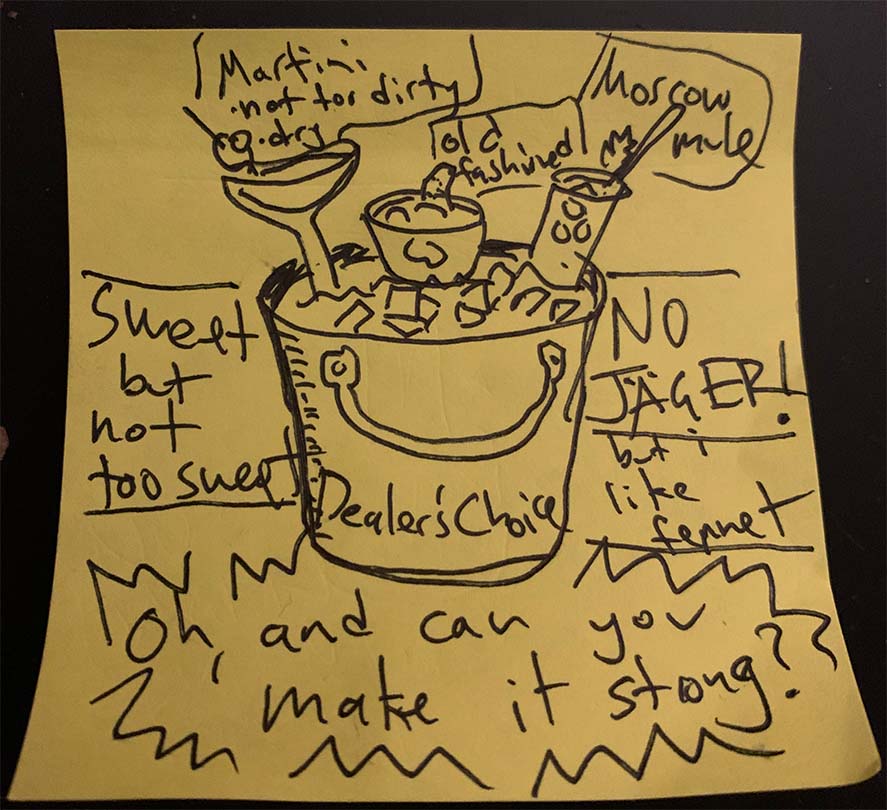 Martini
·not too dirty
·dry
old
fashined
Moscow
mule
Sweet
but
not
too sweet
NO
JÄGER!
but i
like
fernet
Dealer's Choice
Oh, and can you
make it strong??